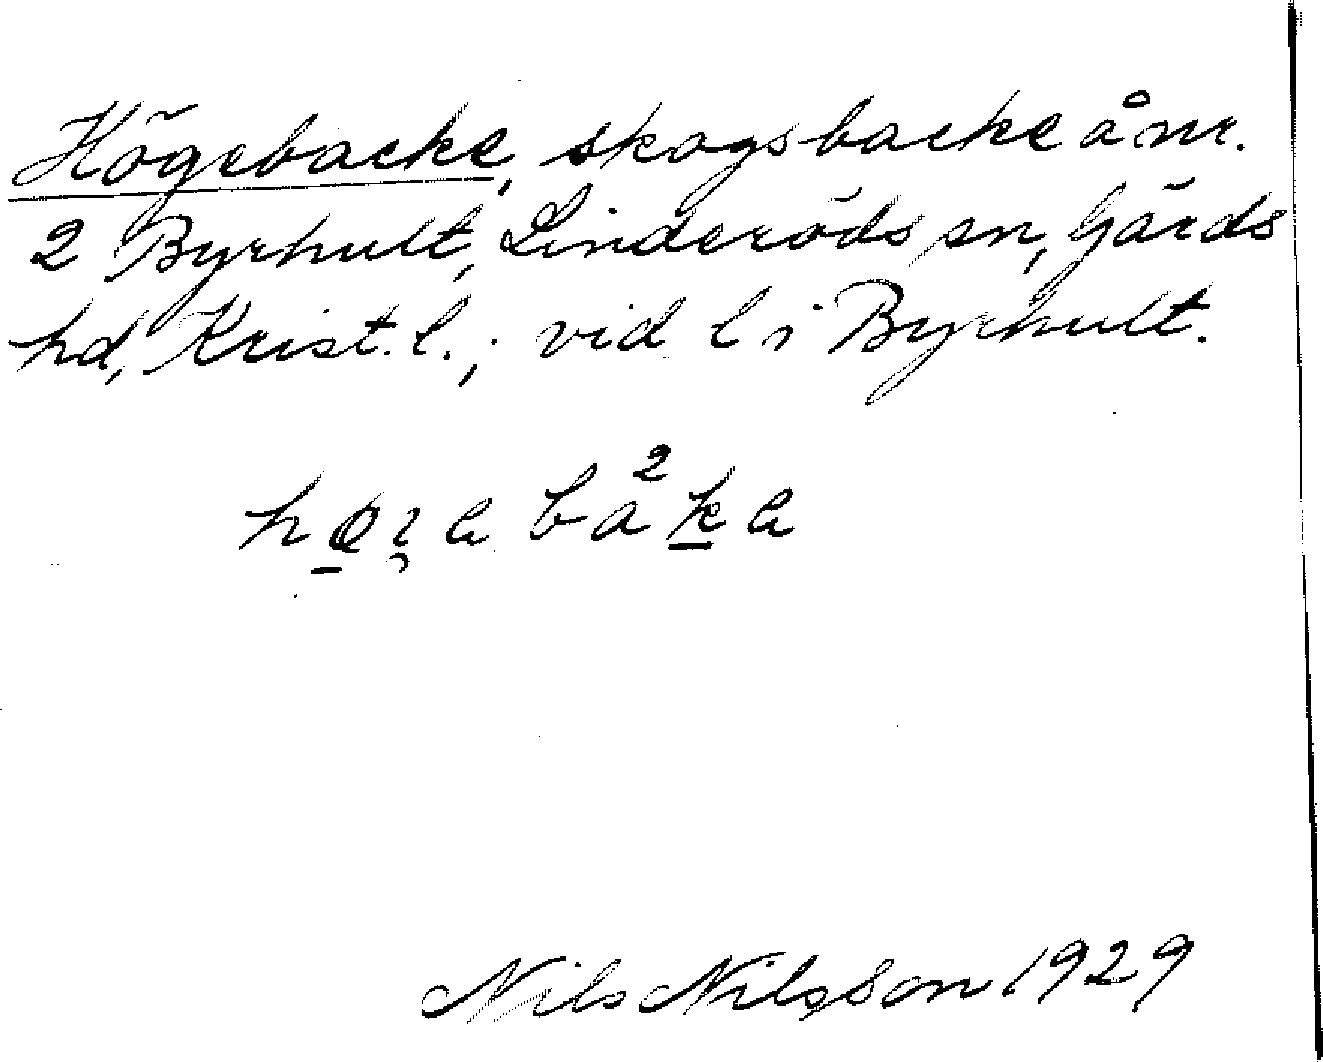 Högebacke, skogsbacke å nr.
2 Byrhult, Linderöds sn, Gärds
hd, Krist. l.; vid l i Byrhult.
Nils Nilsson 1929